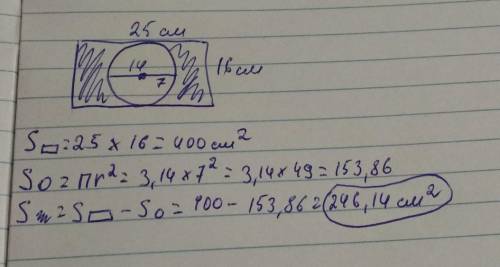 25 см
14
7
16 см
S▭ = 25 × 16 = 400 см²
SO = πr² = 3,14 × 7² = 3,14 × 49 = 153,86
Sш = S▭ - So = 400 - 153,86 = 246,14 см²